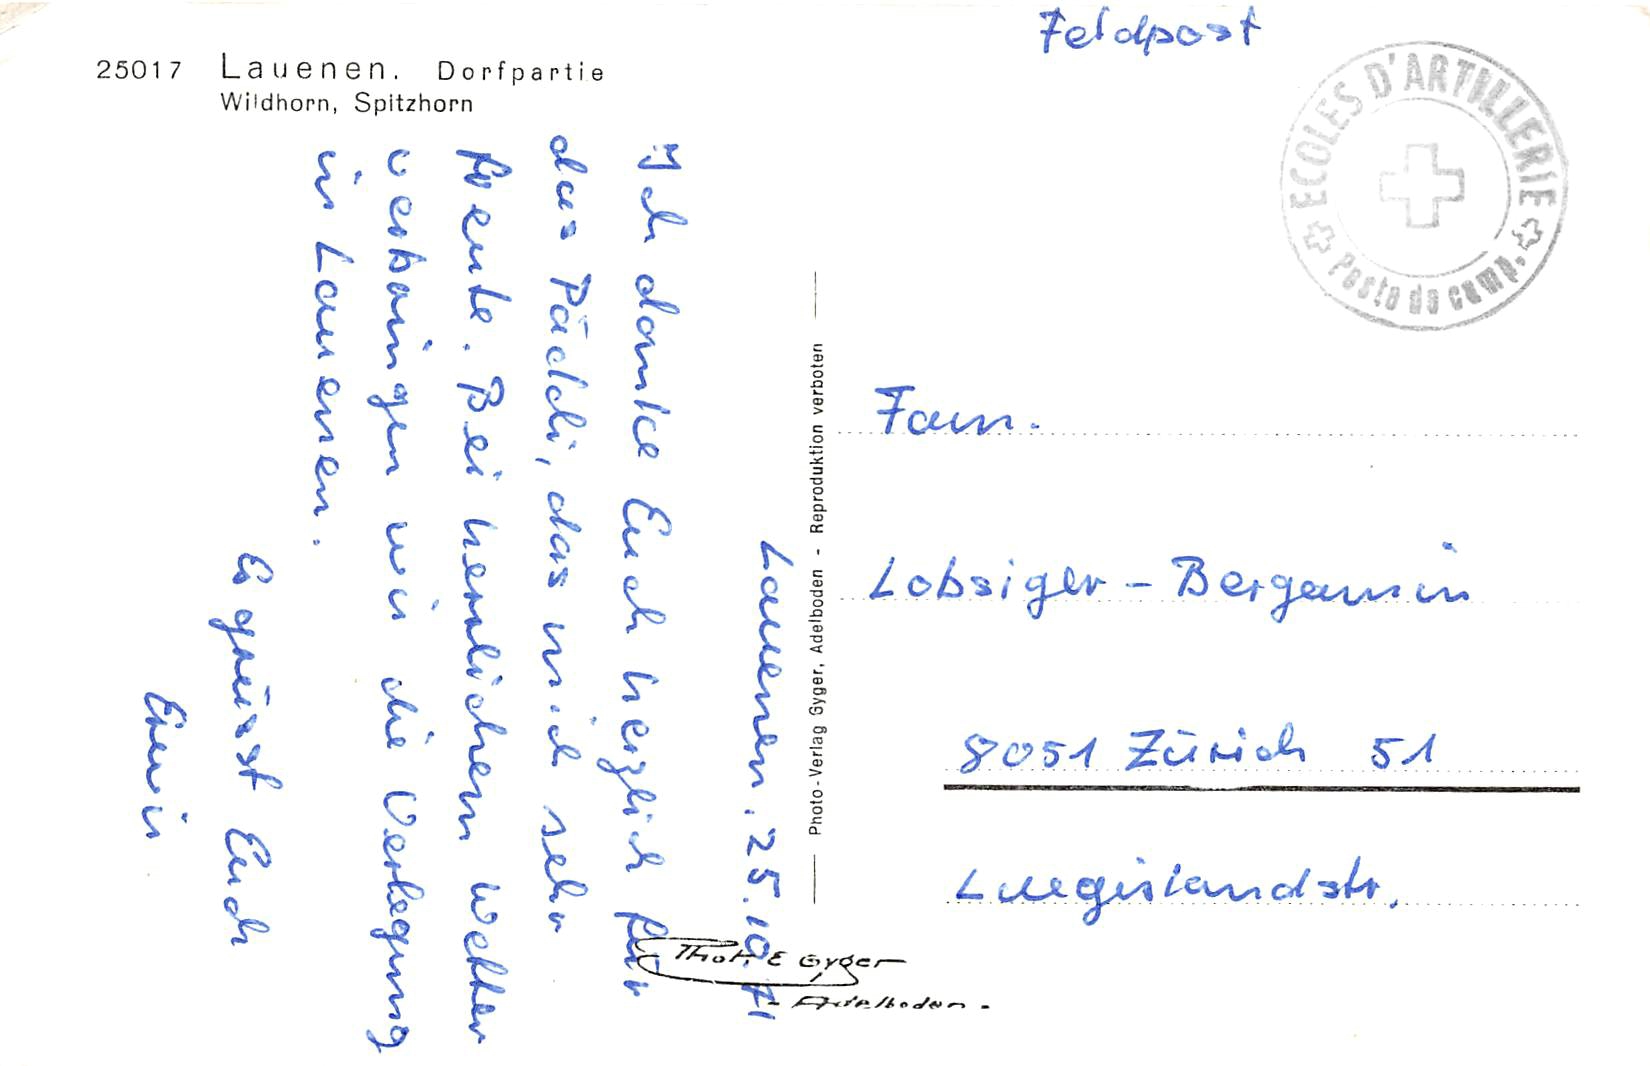 25017 Lauenen. Dorfpartie
Wildhorn, Spitzhorn
Lauenen. 25.10.71
Ich danke Euch herzlich für
das Päckli, das mich sehr
freute. Bei herrlichem Wetter
verbringen wir die Verlegung
in Lauenen.
Es grüsst Euch
Erwin
Photo-Verlag Gyger, Adelboden - Reproduktion verboten
Phot. E Gyger
- Adelboden -
Feldpost
ECOLES D'ARTILLERIE
Poste de camp.
Fam.
Lobsiger - Bergamin
8051 Zürich 51
Luegislandstr.